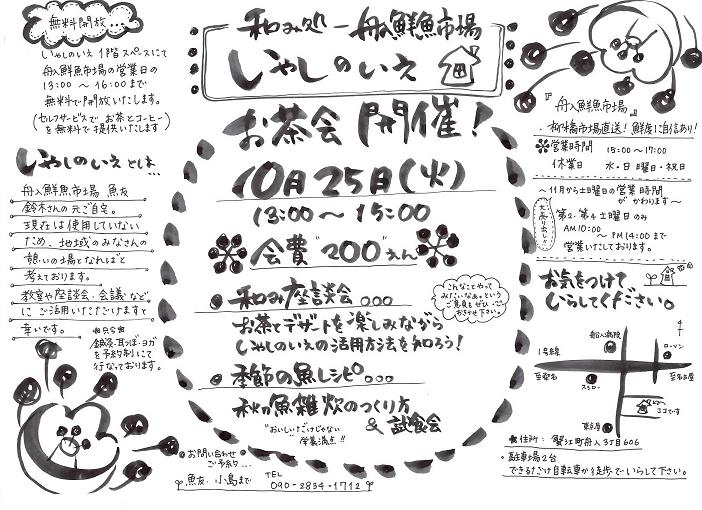 無料開放...
いやしのいえ 1階スペースにて
舟入鮮魚市場の営業日の
13:00 〜 16:00まで
無料で開放いたします。
(セルフサービスで お茶とコーヒー)
を無料で提供いたします
いやしのいえとは...
舟入鮮魚市場 魚友
鈴木さんの元ご自宅。
現在は使用していない
ため、地域のみなさんの
憩いの場となればと
考えております。
教室や座談会・会議などに
ご活用いただけますと
幸いです。
鍼灸・耳つぼ・ヨガ
を予約制にて
行なっております。
和み処 - 舟入鮮魚市場
いやしのいえ
お茶会 開催!
10月25日(火)
13:00〜15:00
会費"200"えん
和み座談会...
こんなことやって
みたいなぁ。という
ご意見もぜひ
おきかせ下さい。
お茶とデザートを楽しみながら
いやしのいえの活用方法を知ろう!
季節の魚レシピ...
秋の魚雑炊のつくり方
& 試食会
"おいしいだけじゃない
栄養満点!!
お問い合わせ
ご予約...
魚友 小島まで
TEL
090-2834-1712
『舟入鮮魚市場』
・柳橋市場直送!鮮度に自信あり!
営業時間 15:00〜17:00
休業日 水・日曜日・祝日
〜11月から土曜日の営業時間
がかわります〜
大売り出し!!
第2・第4土曜日のみ
AM10:00
〜PM14:00まで
営業いたしております。
お気をつけて
いらしてください。
舟入病院
ローソン
1号線
至桑名
至名古屋
スシロー
ココです
住所: 蟹江町舟入3丁目606
・駐車場2台
できるだけ自転車か徒歩でいらして下さい。